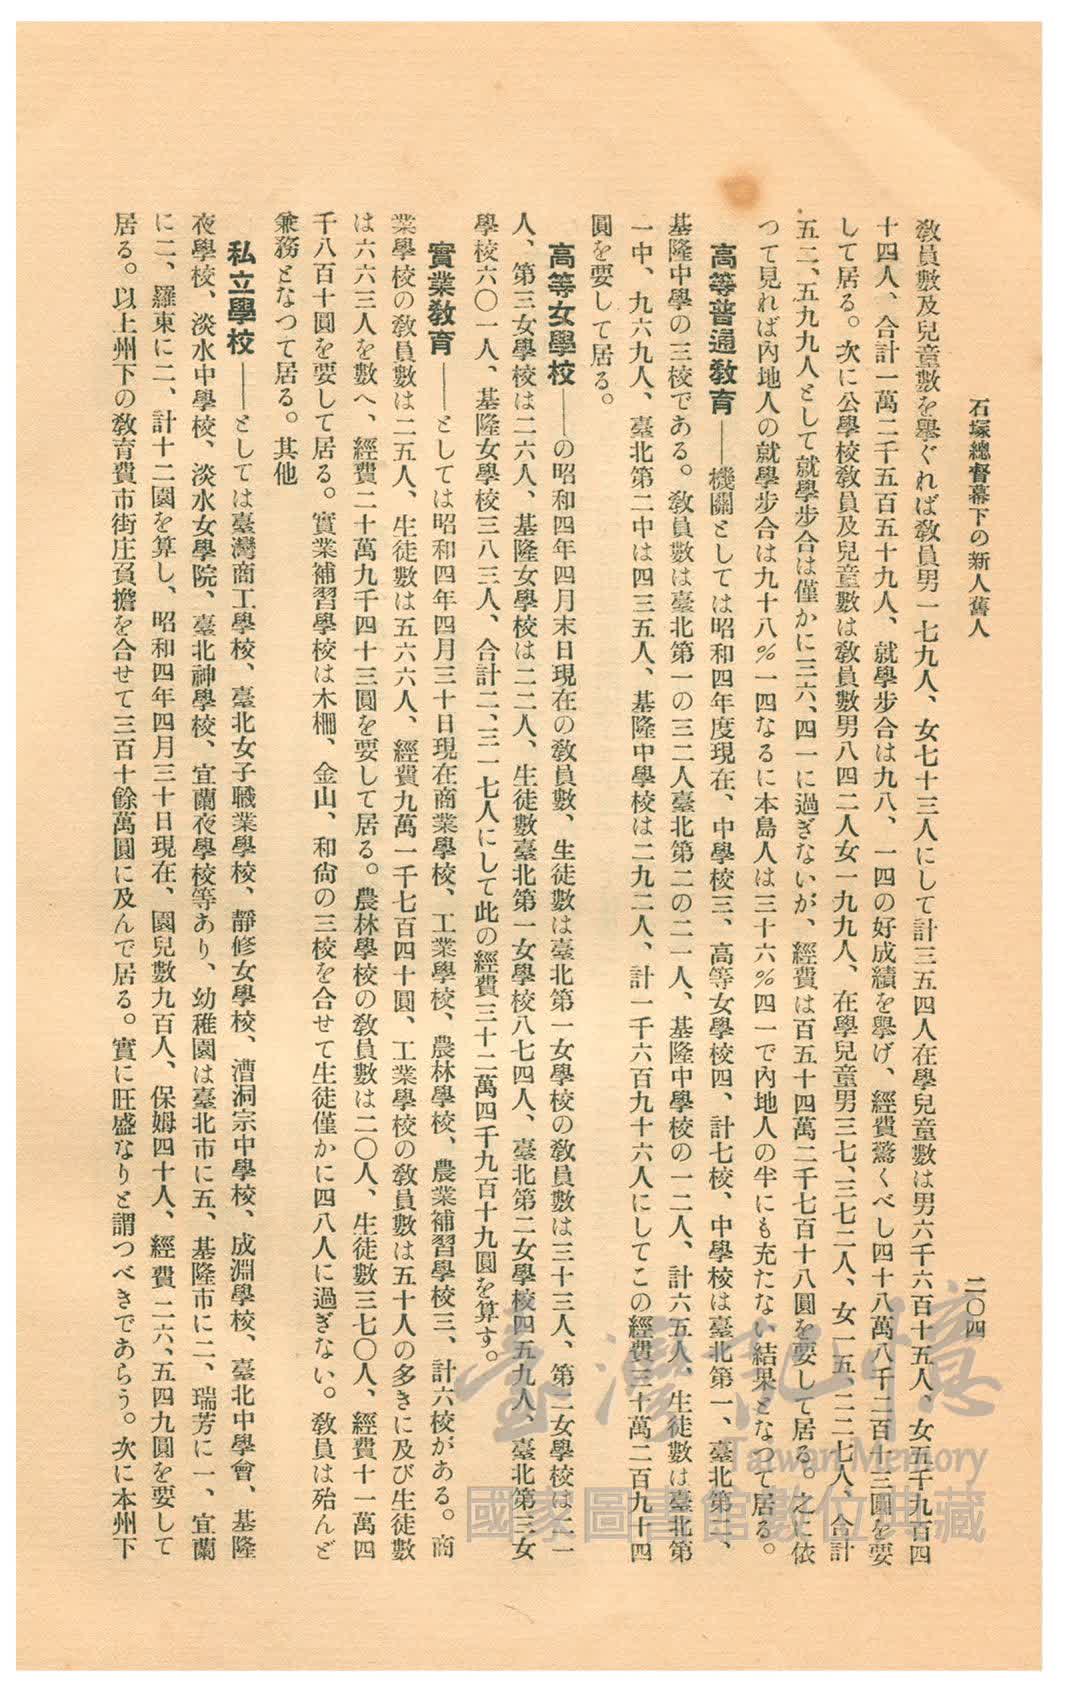 石塚總督幕下の新人舊人
二〇四
敎員數及兒童數を擧ぐれば敎員男一七九人、女七十三人にして計三五四人在學兒童數は男六千六百十五人、女五千九百四
十四人、合計一萬二千五百五十九人、就學步合は九八、一四の好成績を擧げ、經費驚くべし四十八萬八千二百十三圓を要
して居る。次に公學校敎員及兒童數は敎員數男八四二人女一九九人、在學兒童男三七、三七二人、女一五、二二七人、合計
五二、五九九人として就學步合は僅かに三六、四一に過ぎないが、經費は百五十四萬二千七百十八圓を要して居る。之に依
つて見れば內地人の就學步合は九十八％一四なるに本島人は三十六％四一で內地人の半にも充たない結果となつて居る。
高等普通敎育――機關としては昭和四年度現在、中學校三、高等女學校四、計七校、中學校は臺北第一、臺北第二、
基隆中學の三校である。敎員數は臺北第一の三二人臺北第二の二一人、基隆中學校の一二人、計六五人、生徒數は臺北第
一中、九六九人、臺北第二中は四三五人、基隆中學校は二九二人、計一千六百九十六人にしてこの經費三十萬二百九十四
圓を要して居る。
高等女學校――の昭和四年四月末日現在の敎員數、生徒數は臺北第一女學校の敎員數は三十三人、第二女學校は二一
人、第三女學校は二六人、基隆女學校は二二人、生徒數臺北第一女學校八七四人、臺北第二女學校四五九人、臺北第三女
學校六〇一人、基隆女學校三八三人、合計二、三一七人にして此の經費三十二萬四千九百十九圓を算す。
實業敎育――としては昭和四年四月三十日現在商業學校、工業學校、農林學校、農業補習學校三、計六校がある。商
業學校の敎員數は二五人、生徒數は五六六人、經費九萬一千七百四十圓、工業學校の敎員數は五十人の多きに及び生徒數
は六六三人を數へ、經費二十萬九千四十三圓を要して居る。農林學校の敎員數は二〇人、生徒數三七〇人、經費十一萬四
千八百十圓を要して居る。實業補習學校は木柵、金山、和尙の三校を合せて生徒僅かに四八人に過ぎない。敎員は殆んど
兼務となつて居る。其他
私立學校――としては臺灣商工學校、臺北女子職業學校、靜修女學校、漕洞宗中學校、成淵學校、臺北中學會、基隆
夜學校、淡水中學校、淡水女學院、臺北神學校、宜蘭夜學校等あり、幼稚園は臺北市に五、基隆市に二、瑞芳に一、宜蘭
に二、羅東に二、計十二園を算し、昭和四年四月三十日現在、園兒數九百人、保姆四十人、經費二六、五四九圓を要して
居る。以上州下の敎育費市街庄負擔を合せて三百十餘萬圓に及んで居る。實に旺盛なりと謂つべきであらう。次に本州下
臺灣記憶
Taiwan Memory
國家圖書館數位典藏